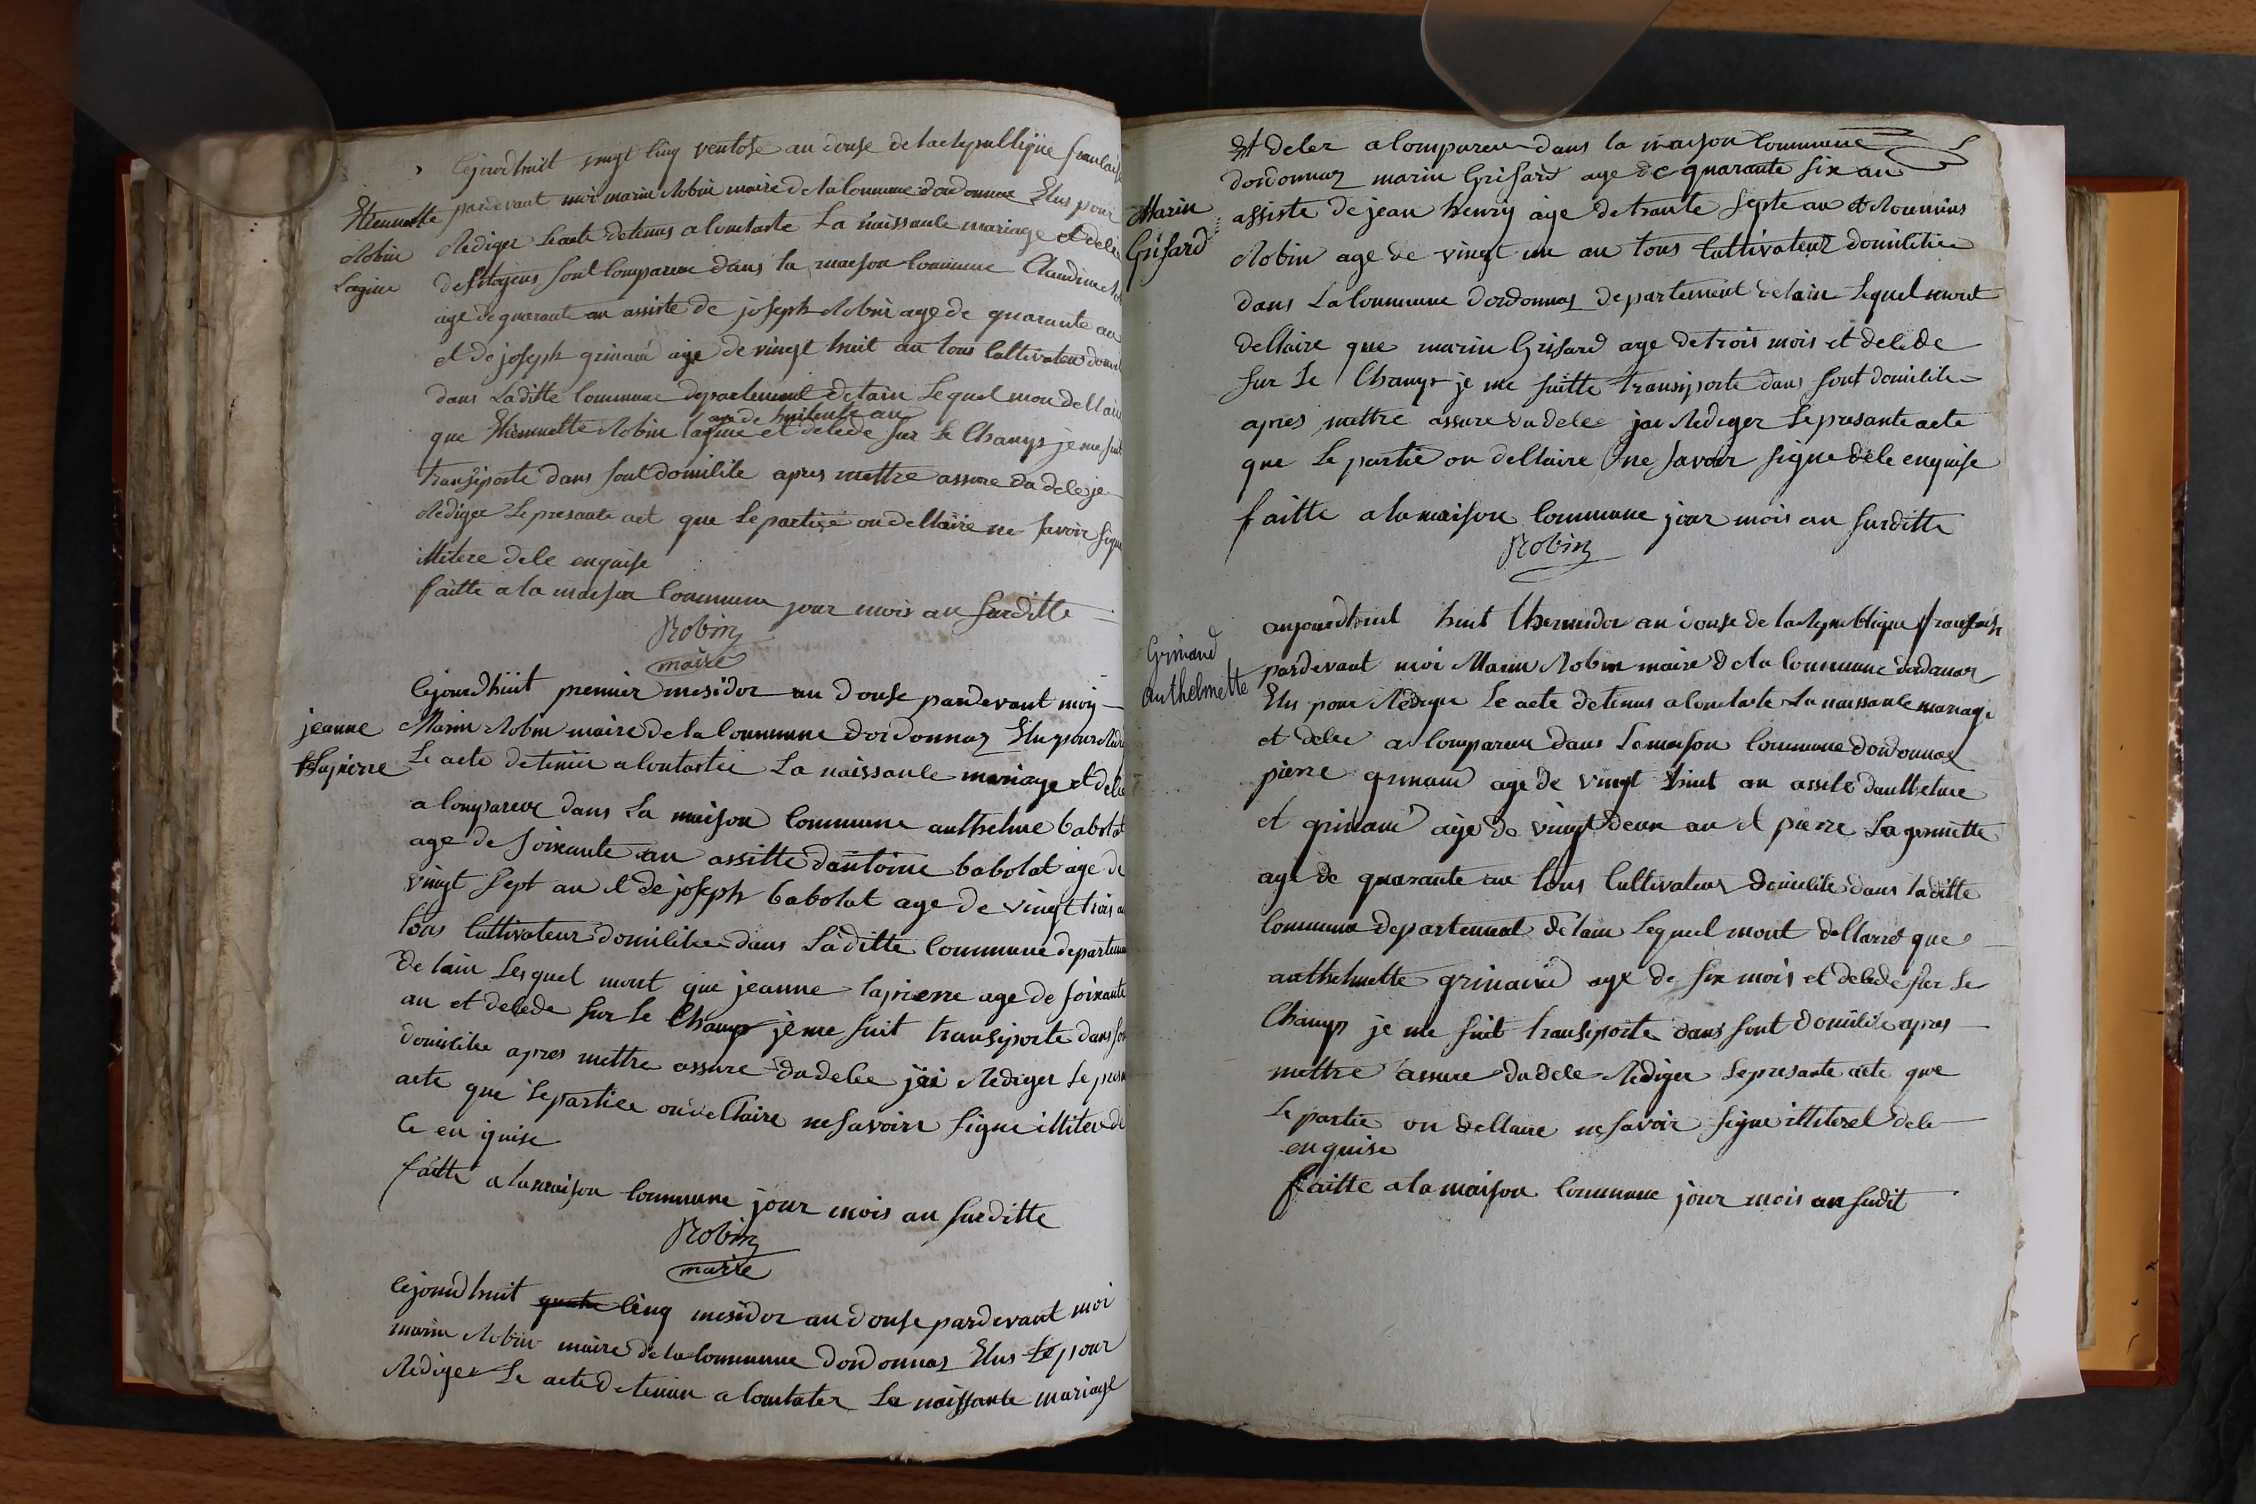 Cejourdhuit vingt cinq ventose an douse de la Republique francaise
pardevant moi marin Robin maire de la Commune dordonnaz Elus pour
Etiennette
Robin
Lagine
Rediger Le acte detenus a Constaste La naissance mariage et deces
des Citoyens sont Compareu dans la maison Commune Claudine
age de quarante an assiste de joseph Robin age de quarante an
et de joseph grinand age de vingt huit an tous Cultivateur
dans Laditte Commune departement de lain Lequel mon dellaire
age de huitente an
que Etiennette Robin lagine et decede sur Le Champs je me suit
transporte dans sont domicile apres mettre assure du dele je
Rediger Le presante act que Lepartie on dellaire ne savoir signe
illitere dele enquise
faitte a la maison Commune jour mois an surditte
Robin
maire
Cejourdhuit premier mesidor an douse pardevant moy
jeanne
Lapierre
Marin Robin maire de la Commune dordonnaz Elu pour
Le acte detenue a Contastee La naissance mariage et deces
a Compareue dans La maison Commune anthelme babolat
age de soixante an assitte dantoine babolat age de
vingt sept an et de joseph babolat age de vingt trois an
tous Cultivateur domicilie dans Laditte Commune departement
de lain Lesquel mont que jeanne lapierre age de soixante
an et decede sur Le Champs je me suit transporte dans son
domicilie apres mettre assure du delee jai Rediger Le
acte que Lepartiee on dellaire ne savoire signe illitere de
le enquise
faitte a la maison Commune jour mois an surditte
Robin
maire
Cejourdhuit quatre Cinq mesidor an douse pardevant moi
marin Robin maire de la Commune dordonnaz Elus Le pour
Rediger Le acte detenue a Contater La naissante mariage
Et deler a Compareu dans la maison Commune
dordonnaz marin Grisard age de quarante six an
Marin
Grisard
assiste de jean henry age de trante septe an et
Robin age de vingt un an tous Cultivateur domicilie
dans La Commune dordonnaz departement de lain Lequel mont
dellaire que marin Grisard age de trois mois et delede
sur Le Champs je me suitte transporte dans sont domicilie
apres mettre assure du delee jai Rediger Le presante acte
que Le partie on dellaire ne savoir signe dele enquise
faitte a la maison Commune jour mois an surditte
Robin
aujourdhuit huit thermidor an douse de la Republique francaise
Grinand
anthelmette
pardevant moi Marin Robin maire de la Commune dordonnaz
Elu pour Rediger Le acte detenus a Contaste La naissante mariage
et delee a Compareu dans La maison Commune dordonnaz
pierre grinand age de vingt huit an assite danthelme
et grinand age de vingt deux an et pierre
age de quarante an tous Cultivateur domicilie dans laditte
Commune departement de lain Lequel mont dellaire que
anthelmette grinand age de six mois et delede sur Le
Champs je me suit transporte dans sont domicilie apres
mettre assure du dele Rediger Le presante acte que
Le partie on dellaire ne savoir signe illiterel dele
enquise
faitte a la maison Commune jour mois an sudit